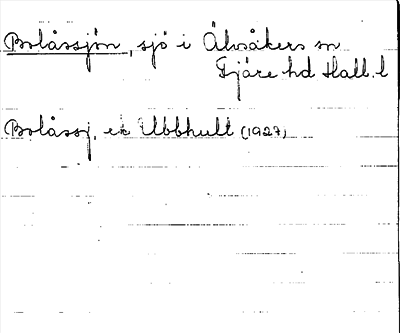 Bolåssjön, sjö i Älvsåkers sn
Fjäre hd Hall. l
Bolåssj. ek Ubbhult (1927)